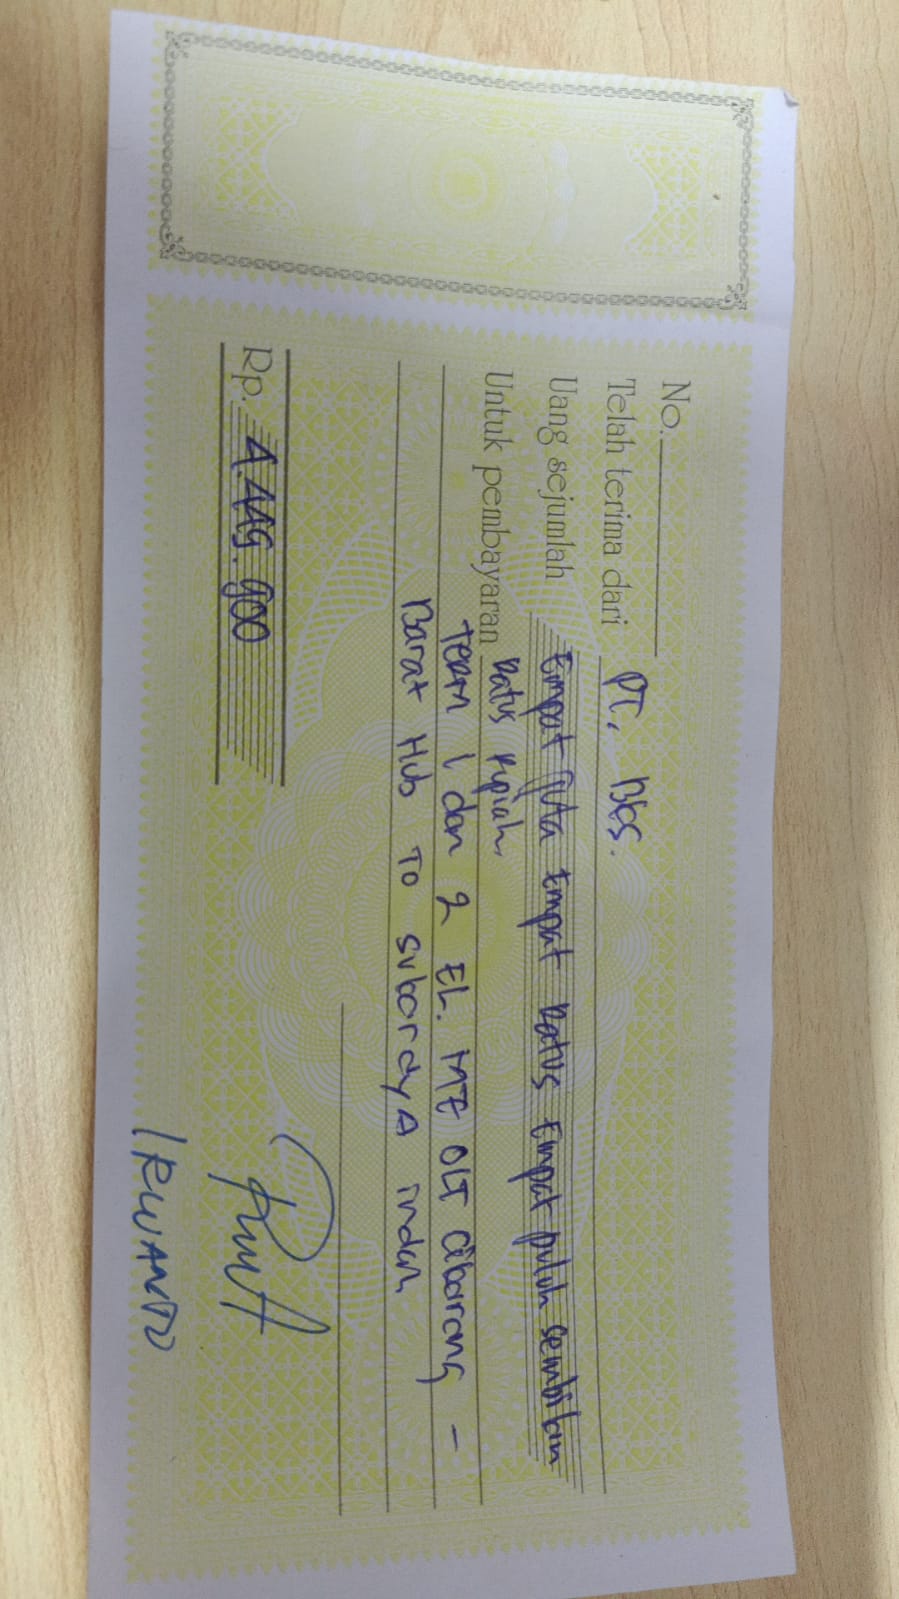 No.
Telah terima dari PT. BCS.
Uang sejumlah Empat Juta Empat Ratus Empat puluh sembilan
Untuk pembayaran Ratus rupiah,
Term 1 dan 2 EL. MTE OLT Cibarang -
Barat Hub To subordyA indah
Rp. 4.449.900
IRWANTO